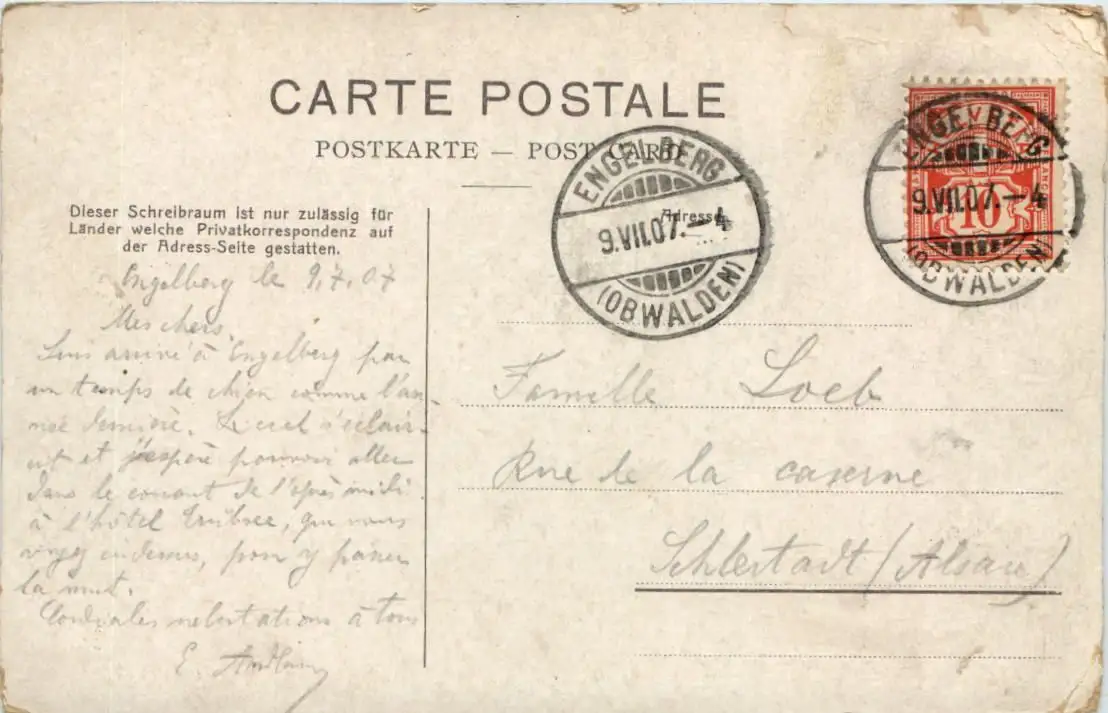 CARTE POSTALE
POSTKARTE — POST CARD
Dieser Schreibraum ist nur zulässig für
Länder welche Privatkorrespondenz auf
der Adress-Seite gestatten.
Engelberg le 9.7.07
Mes chers,
Suis arrivé à Engelberg par
un temps de chien comme l'an-
née dernière. Le ciel s'éclair-
cit et j'espère pouvoir aller
dans le courant de l'après midi
à l'hôtel Trübsee, que vous
voyez ci-dessus, pour y passer
la nuit.
Cordiales à tous
E.
ENGELBERG
9.VII.07.–4
(OBWALDEN)
Adresse
ENGELBERG
9.VII.07.–4
(OBWALDEN)
10
Famille Loeb
Rue de la caserne
Schlestadt (Alsace)